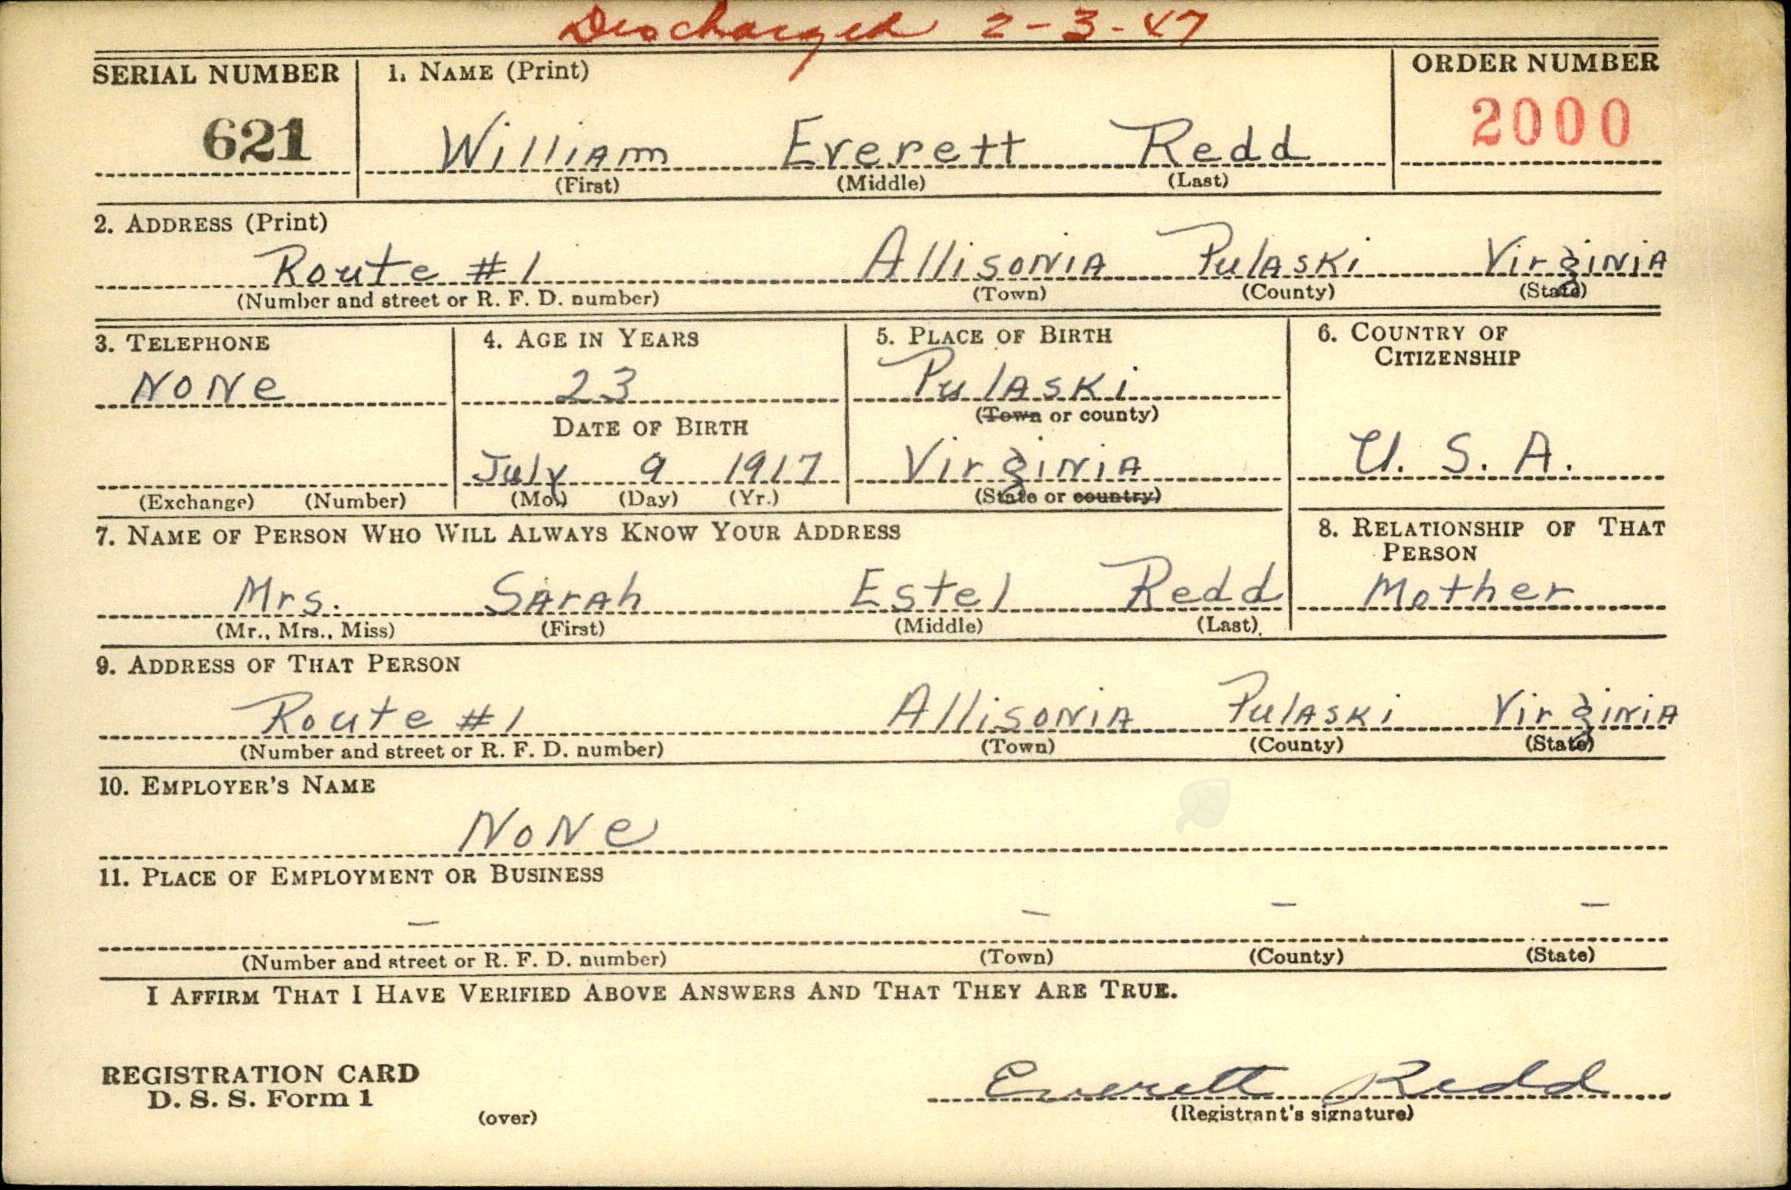 Discharged 2-3-47
SERIAL NUMBER 1. NAME (Print) ORDER NUMBER
621 William Everett Redd 2000
(First) (Middle) (Last)
2. ADDRESS (Print)
Route #1 Allisonia Pulaski Virginia
(Number and street or R. F. D. number) (Town) (County) (State)
3. TELEPHONE 4. AGE IN YEARS 5. PLACE OF BIRTH 6. COUNTRY OF
CITIZENSHIP
None 23 Pulaski
(Town or county)
DATE OF BIRTH
July 9 1917 Virginia U. S. A.
(Exchange) (Number) (Mo.) (Day) (Yr.) (State or country)
7. NAME OF PERSON WHO WILL ALWAYS KNOW YOUR ADDRESS 8. RELATIONSHIP OF THAT
PERSON
Mrs. Sarah Estel Redd Mother
(Mr., Mrs., Miss) (First) (Middle) (Last)
9. ADDRESS OF THAT PERSON
Route #1 Allisonia Pulaski Virginia
(Number and street or R. F. D. number) (Town) (County) (State)
10. EMPLOYER'S NAME
None
11. PLACE OF EMPLOYMENT OR BUSINESS
– – – –
(Number and street or R. F. D. number) (Town) (County) (State)
I AFFIRM THAT I HAVE VERIFIED ABOVE ANSWERS AND THAT THEY ARE TRUE.
REGISTRATION CARD
D. S. S. Form 1
Everett Redd
(over) (Registrant's signature)